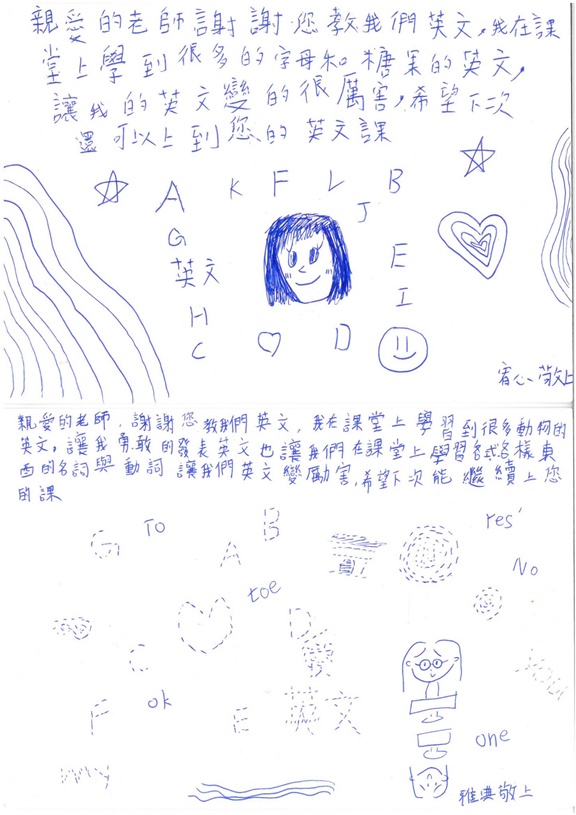 親愛的老師謝謝您教我們英文,我在課
堂上學到很多的字母和糖果的英文,
讓我的英文變的很厲害,希望下次
還可以上到您的英文課
A K F L B
J
G
英文
E
I
H
C
D
宥心敬上
親愛的老師,謝謝您教我們英文,我在課堂上學習到很多動物的
英文,讓我勇敢的發表英文也讓我們在課堂上學習各式各樣東
西的名詞與動詞 讓我們英文變勵害,希望下次能繼續上您
的課
G TO A B
Yes'
No
toe
D
C
歡
you
F ok E 英文
one
my
雅典敬上